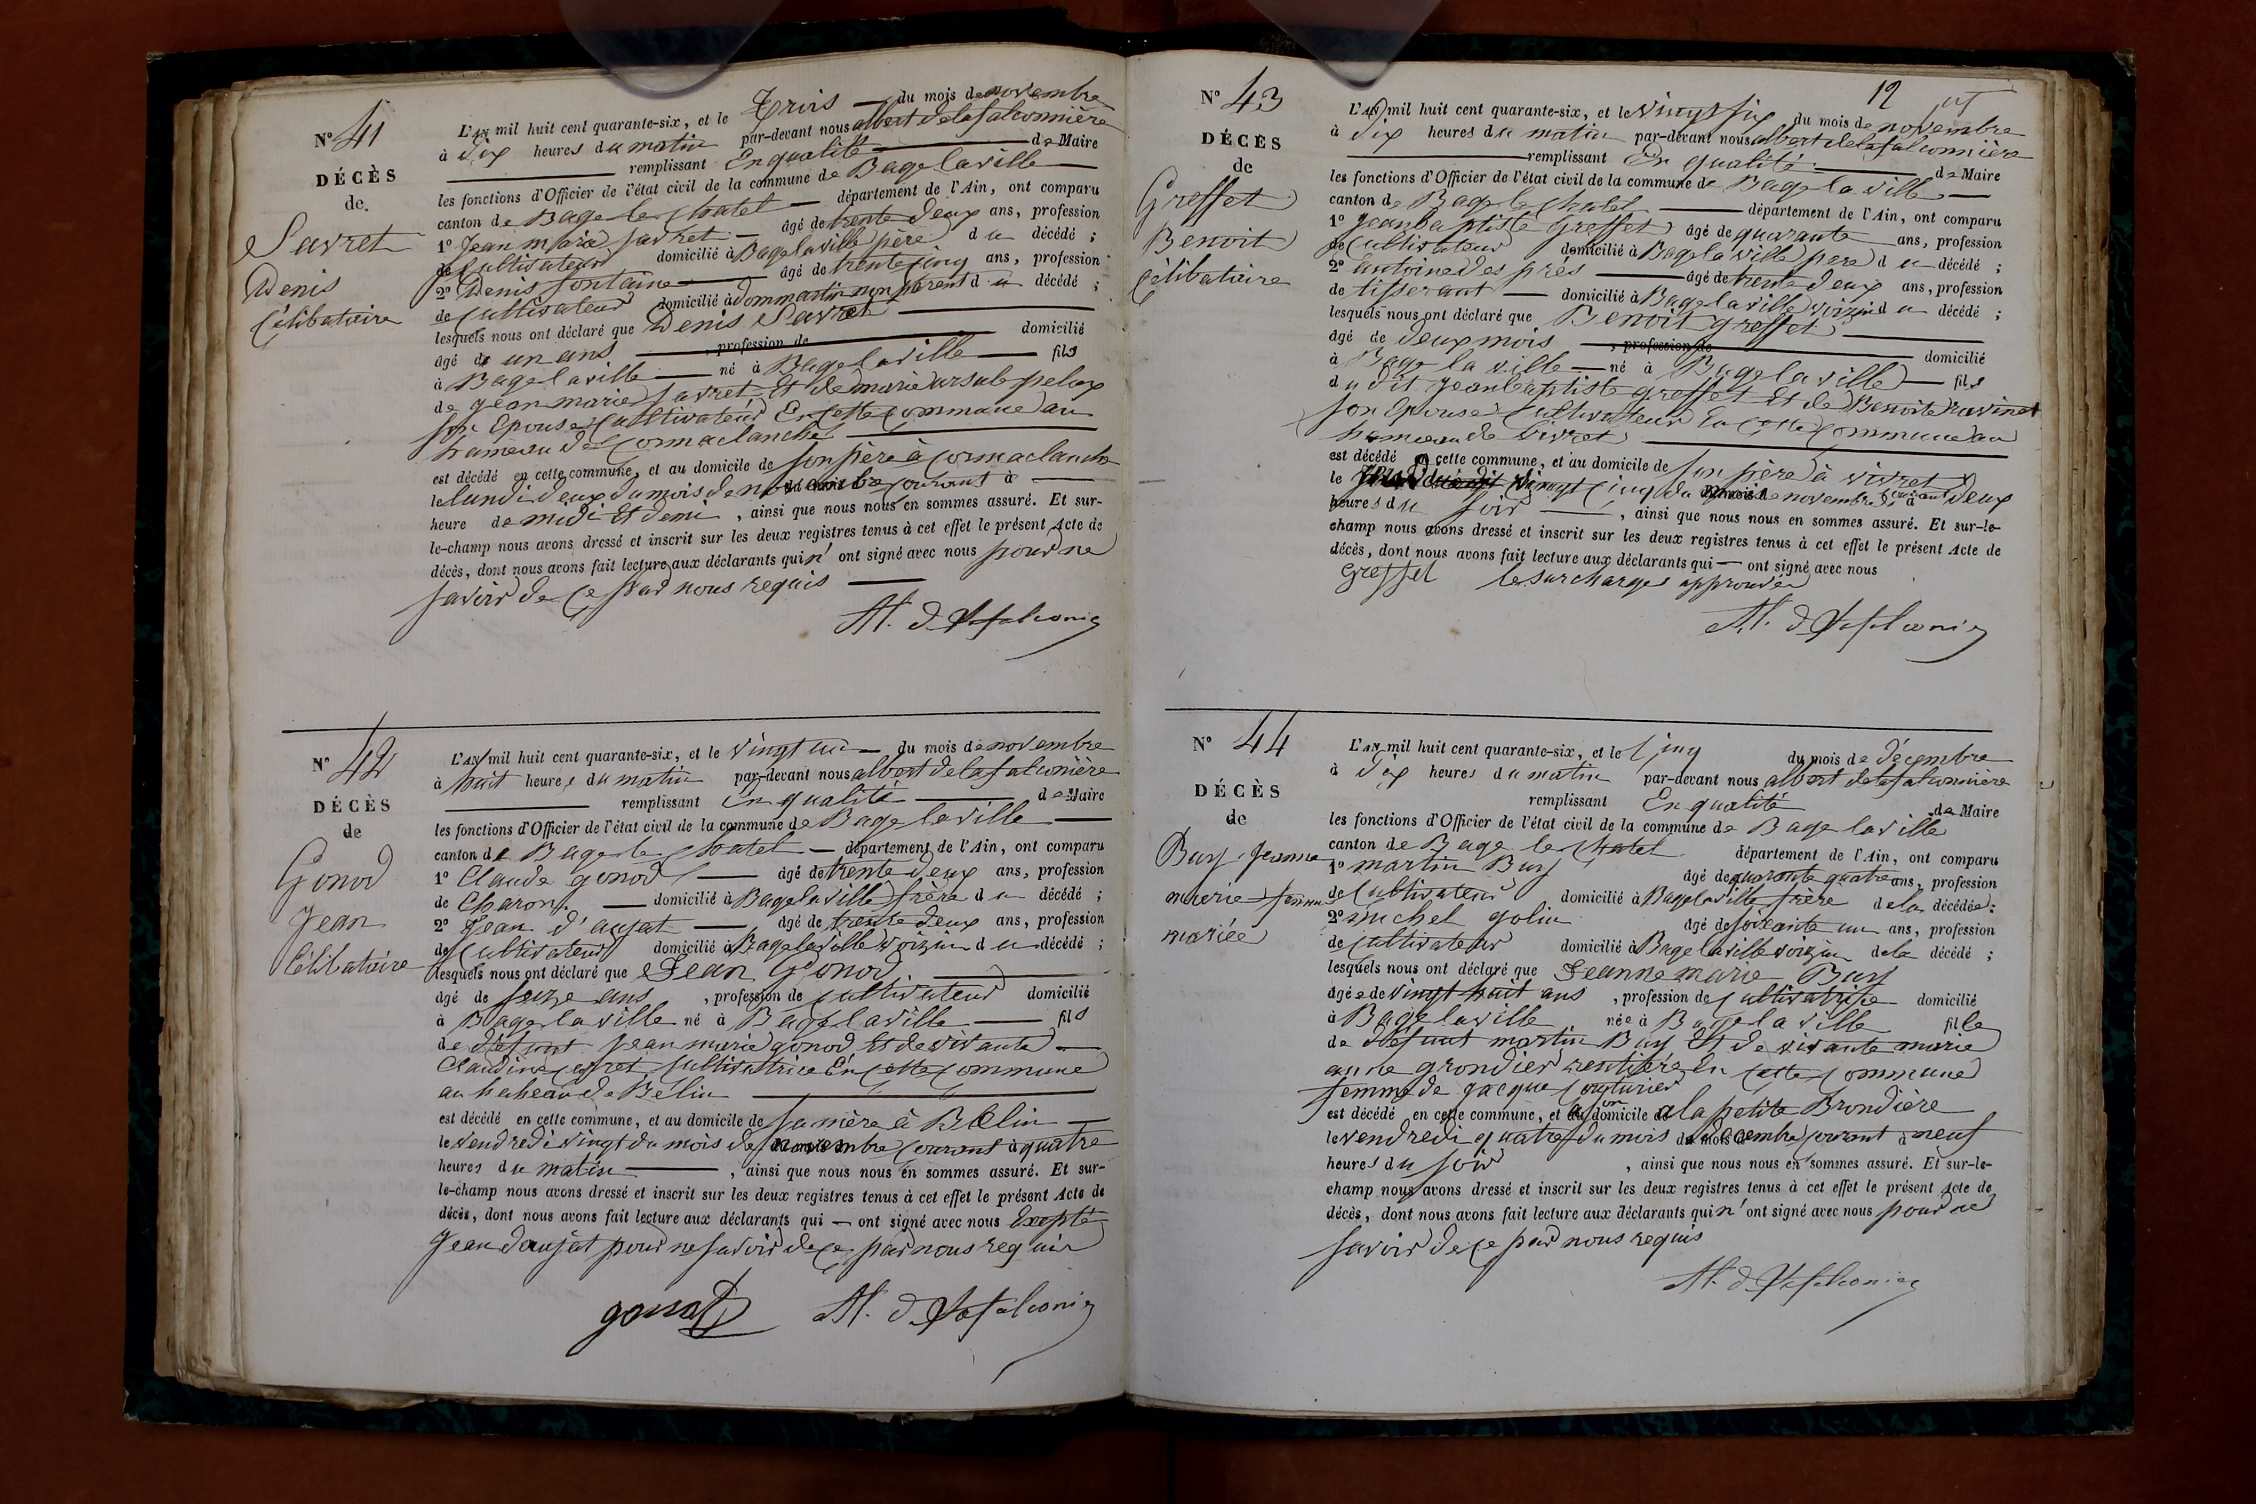 N° 41
DÉCÈS
de
Savret
Denis
Célibataire
L'AN mil huit cent quarante-six, et le Trois — du mois de novembre
à dix heures du matin par-devant nous albert delafalconnière
remplissant En qualité de Maire
les fonctions d'Officier de l'état civil de la commune de Bage la ville
canton de Bage le chatel — département de l'Ain, ont comparu
1° Jean marie Savret — âgé de trente deux ans, profession
de Cultivateur domicilié à Bage la ville père du décédé ;
2° Denis fontaine — âgé de trente cinq ans, profession
de Cultivateur domicilié à dommartin non parent du décédé ;
lesquels nous ont déclaré que Denis Savret
âgé de un ans , profession de domicilié
à Bage la ville — né à Bage la ville — fils
de jean marie Savret Et de marie ursule pelox
son Epouse Cultivateur En Cette Commune au
hameau de Cormaclanche
est décédé en cette commune, et au domicile de son père à Cormaclanche
le lundi deux du mois de novembre courant à
heure de midi Et demi , ainsi que nous nous en sommes assuré. Et sur-
le-champ nous avons dressé et inscrit sur les deux registres tenus à cet effet le présent Acte de
décès, dont nous avons fait lecture aux déclarants qui n'ont signé avec nous pour ne
savoir de ce par nous requis
Al. d Lafalconnière
N° 42
DÉCÈS
de
Gonod
Jean
Célibataire
L'AN mil huit cent quarante-six, et le vingt un — du mois de novembre
à huit heures du matin par-devant nous albert delafalconière
remplissant En qualité de Maire
les fonctions d'Officier de l'état civil de la commune de Bage la ville
canton de Bage le chatel — département de l'Ain, ont comparu
1° Claude gonod — âgé de trente deux ans, profession
de Charon — domicilié à Bage la ville frère du décédé ;
2° Jean d'aujat — âgé de trente deux ans, profession
de Cultivateur domicilié à Bage la ville voizin du décédé ;
lesquels nous ont déclaré que Jean Gonod
âgé de seize ans , profession de Cultivateur domicilié
à Bage la ville né à Bage la ville — fils
de défunt jean marie gonod Et de vivante
Claudine Cultivatrice En Cette Commune
au hameau de Bélin
est décédé en cette commune, et au domicile de sa mère à Bélin
le vendredi vingt du mois de novembre courant à quatre
heures du matin , ainsi que nous nous en sommes assuré. Et sur-
le-champ nous avons dressé et inscrit sur les deux registres tenus à cet effet le présent Acte de
décès, dont nous avons fait lecture aux déclarants qui — ont signé avec nous Excepté
Jean daujat pour ne savoir de ce par nous requis
gonod Al. d Lafalconnière
12
N° 43
DÉCÈS
de
Greffet
Benoit
Célibataire
L'AN mil huit cent quarante-six, et le vingt six du mois de novembre
à dix heures du matin par-devant nous albert delafalconnière
remplissant En qualité de Maire
les fonctions d'Officier de l'état civil de la commune de Bage la ville
canton de Bage le chatel — département de l'Ain, ont comparu
1° Jean baptiste Greffet âgé de quarante ans, profession
de Cultivateur domicilié à Bage la ville père du décédé ;
2° antoine des prés — âgé de trente deux ans, profession
de tisserant — domicilié à Bage la ville voizin du décédé ;
lesquels nous ont déclaré que Benoit greffet
âgé de deux mois , profession de domicilié
à Bage la ville — né à Bage la ville — fils
du dit jean baptiste greffet Et de Benoite ravinet
son Epouse Cultivateur En Cette Commune au
hameau de vivret
est décédé en cette commune, et au domicile de son père à vivret
le vingt cinq du mois de novembre courant à deux
heures du soir , ainsi que nous nous en sommes assuré. Et sur-le-
champ nous avons dressé et inscrit sur les deux registres tenus à cet effet le présent Acte de
décès, dont nous avons fait lecture aux déclarants qui — ont signé avec nous
Greffet le surcharges approuvée
Al. d Lafalconnière
N° 44
DÉCÈS
de
Buy Jeanne
marie femme
mariée
L'AN mil huit cent quarante-six, et le Cinq du mois de décembre
à dix heures du matin par-devant nous albert delafalconnière
remplissant En qualité de Maire
les fonctions d'Officier de l'état civil de la commune de Bage la ville
canton de Bage le chatel département de l'Ain, ont comparu
1° martin Buy âgé de quarante quatre ans, profession
de Cultivateur domicilié à Bage la ville frère de la décédée ;
2° michel golin âgé de soixante un ans, profession
de Cultivateur domicilié à Bage la ville voizin de la décédé ;
lesquels nous ont déclaré que Jeanne marie Buy
âgée de vingt huit ans , profession de Cultivatrice domicilié
à Bage la ville née à Bage la ville fille
de défunt martin Buy Et de vivante marie
anne grondier rentière En Cette Commune
femme de jacque Couturier
est décédé en cette commune, et à son domicile de a la petite Brondière
le vendredi quatre du mois de décembre courant à neuf
heures du soir , ainsi que nous nous en sommes assuré. Et sur-le-
champ nous avons dressé et inscrit sur les deux registres tenus à cet effet le présent Acte de
décès, dont nous avons fait lecture aux déclarants qui n'ont signé avec nous pour ne
savoir de ce par nous requis
Al. d Lafalconnière